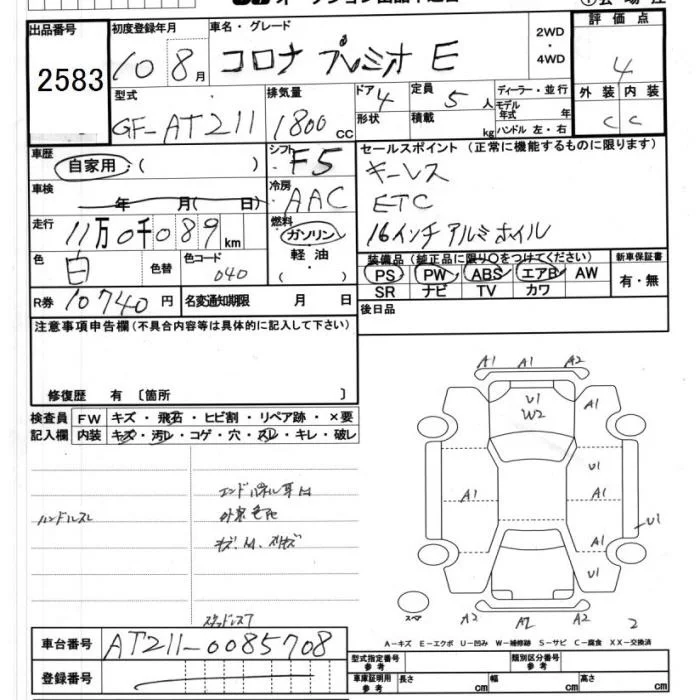 出品番号 初度登録年月 車名・グレード 2WD ・ 4WD 評価点
2583 10 8月 コロナ プレミオ E 4
型式 排気量 ドア 4 定員 5人 ディーラー・並行 外装 内装
GF-AT211 1800cc 形状 積載 kg モデル年式 年 C C
ハンドル 左・右
車歴 自家用・( ) シフト F5 セールスポイント(正常に機能するものに限ります)
車検 年 月( 日) 冷房 AAC キーレス
ETC
走行 11万0千089km 燃料 ガソリン・ 16インチアルミホイル
軽油・
( )
色 白 色替 色コード 040 装備品(純正品に限り○をつけてください) 新車保証書
PS PW ABS エアB AW 有・無
SR ナビ TV カワ
R券 10740円 名変通知期限 月 日 後日品
注意事項申告欄(不具合内容等は具体的に記入して下さい)
修復歴 有〔箇所 〕
検査員 FW キズ・飛石・ヒビ割・リペア跡・×要
記入欄 内装 キズ・汚レ・コゲ・穴・スレ・キレ・破レ
A1 A1 A2
U1
W2
A1
U1
A1 A1
U1
A1
U1
ハンドルスレ
スペア
A2 A2 2
A－キズ E－エクボ U－凹み W－補修跡 S－サビ C－腐食 XX－交換済
車台番号 AT211-0085708
型式指定番号 参考 類別区分番号 参考
登録番号
車庫証明用 参考 長さ cm 幅 cm 高さ cm